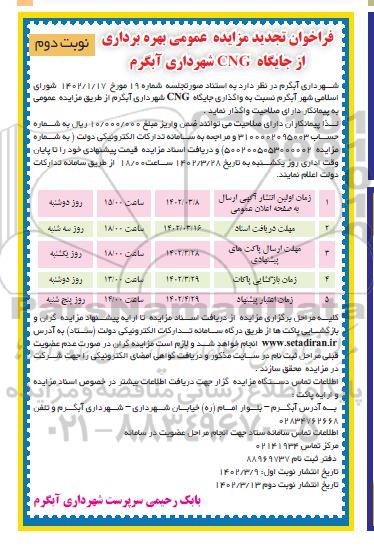 فراخوان تجدید مزایده عمومی بهره برداری
از جایگاه CNG شهرداری آبگرم
نوبت دوم
شهرداری آبگرم در نظر دارد به استناد صورتجلسه شماره ۱۹ مورخ ۱۴۰۲/۱/۱۷ شورای
اسلامی شهر آبگرم نسبت به واگذاری جایگاه CNG شهرداری آبگرم از طریق مزایده عمومی
به پیمانکار دارای صلاحیت واگذار نماید.
لذا پیمانکاران دارای صلاحیت می توانند ضمن واریز مبلغ ۱۰/۰۰۰/۰۰۰ ریال به شماره
حساب ۳۱۰۰۰۰۲۰۹۵۰۰۳ و مراجعه به سامانه تدارکات الکترونیکی دولت ( به شماره
مزایده ۵۰۰۲۰۰۵۰۵۳۰۰۰۰۰۲) و دریافت اسناد مزایده قیمت پیشنهادی خود را تا پایان
وقت اداری روز یکشنبه به تاریخ ۱۴۰۲/۳/۲۸ ساعت ۱۸/۰۰ از طریق سامانه تدارکات
دولت اعلام نمایند.
۱ زمان اولین انتشار آگهی ارسال به صفحه اعلان عمومی ۱۴۰۲/۰۳/۸ ساعت ۱۵/۰۰ روز دوشنبه
۲ مهلت دریافت اسناد ۱۴۰۲/۰۳/۱۶ ساعت ۱۸/۰۰ روز سه شنبه
۳ مهلت ارسال پاکت های پیشنهادی ۱۴۰۲/۳/۲۸ ساعت ۱۸/۰۰ روز یکشنبه
۴ زمان بازگشایی پاکات ۱۴۰۲/۳/۲۹ ساعت ۱۳/۰۰ روز دوشنبه
۵ زمان اعتبار پیشنهاد ۱۴۰۲/۴/۲۹ ساعت ۱۴/۰۰ روز پنج شنبه
کلیه مراحل برگزاری مزایده از دریافت اسناد مزایده تا ارایه پیشنهاد مزایده گران و
بازگشایی پاکت ها از طریق درگاه سامانه تدارکات الکترونیکی دولت (ستاد) به آدرس
www.setadiran.ir انجام خواهد شد و لازم است مزایده گران در صورت عدم عضویت
قبلی مراحل ثبت نام در سایت مذکور و دریافت گواهی امضای الکترونیکی را جهت شرکت
در مزایده محقق سازند.
اطلاعات تماس دستگاه مزایده گزار جهت دریافت اطلاعات بیشتر در خصوص اسناد مزایده
و ارایه پاکت :
به آدرس آبگرم – بلوار امام (ره) خیابان شهرداری – شهرداری آبگرم و تلفن
۰۲۸۳۴۷۶۲۶۶۸
اطلاعات تماس سامانه ستاد جهت انجام مراحل عضویت در سامانه
مرکز تماس ۰۲۱۴۱۹۳۴
دفتر ثبت نام ۸۸۹۶۹۷۳۷
تاریخ انتشار نوبت اول: ۱۴۰۲/۳/۹
تاریخ انتشار نوبت دوم ۱۴۰۲/۳/۱۳
بابک رحیمی سرپرست شهرداری آبگرم